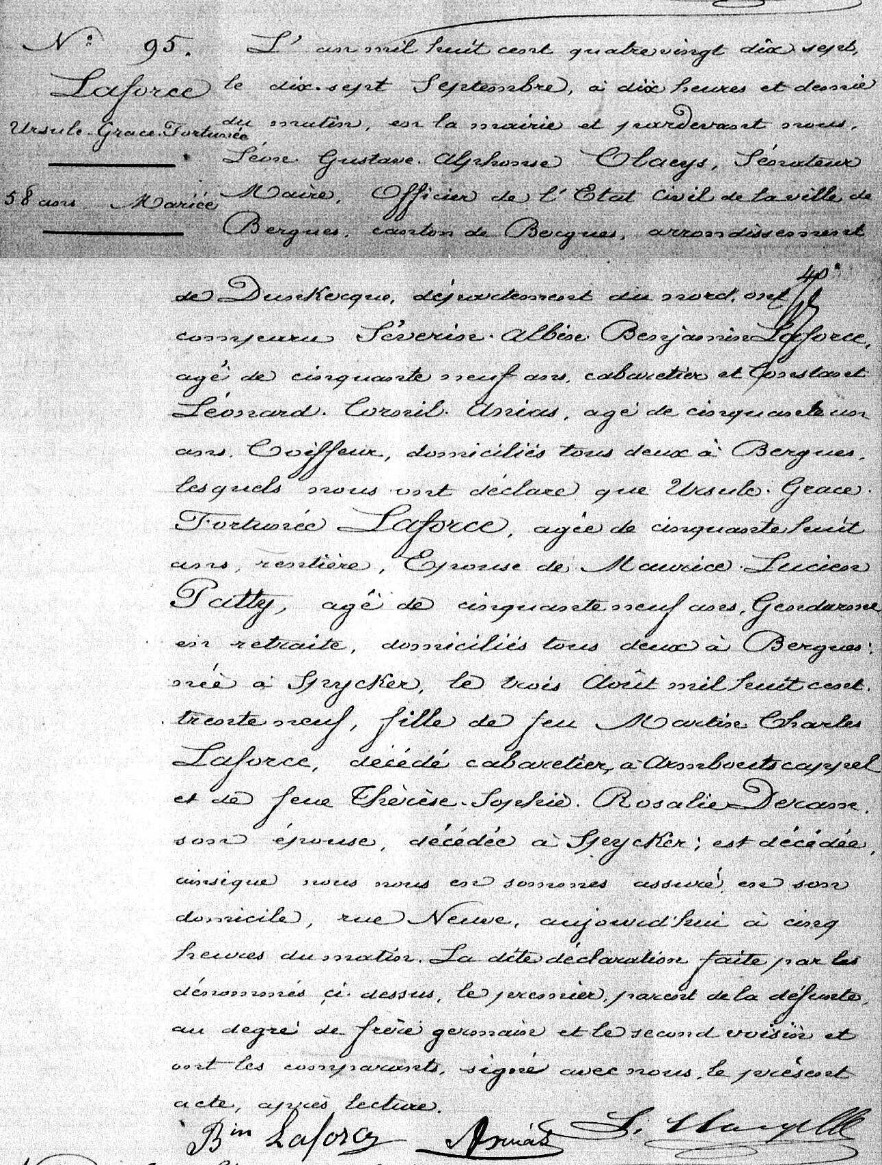 N° 95.
Laforce
Ursule Grace Fortunée
58 ans Mariée
L'an mil huit cent quatre vingt dix sept,
le dix-sept Septembre, à dix heures et demie
du matin, en la mairie et pardevant nous,
Léon Gustave Alphonse Claeys, Sénateur
Maire, Officier de l'Etat Civil de la ville de
Bergues, canton de Bergues, arrondissement
40
de Dunkerque, département du nord, ont
comparu Séverin Albin Benjamin Laforce,
agé de cinquante neuf ans, cabaretier et Constant
Léonard Cornil Anias, agé de cinquante un
ans, Coiffeur, domiciliés tous deux à Bergues,
lesquels nous ont déclaré que Ursule Grace
Fortunée Laforce, agée de cinquante huit
ans, rentière, Epouse de Maurice Lucien
Patty, agé de cinquante neuf ans, Gendarme
en retraite, domiciliés tous deux à Bergues;
née à Spycker, le trois Août mil huit cent
trente neuf, fille de feu Martin Charles
Laforce, décédé cabaretier, à Armboutscappel
et de feue Thérèse Sophie Rosalie Deram,
son épouse, décédée à Spycker; est décédée,
ainsique nous nous en sommes assuré, en son
domicile, rue Neuve, aujourd'hui à cinq
heures du matin. La dite déclaration faite par les
dénommés ci-dessus, le premier, parent de la défunte,
au degré de frère germain et le second voisin et
ont les comparants, signé avec nous, le présent
acte, après lecture.
Bin Laforce Anias L. Claeys